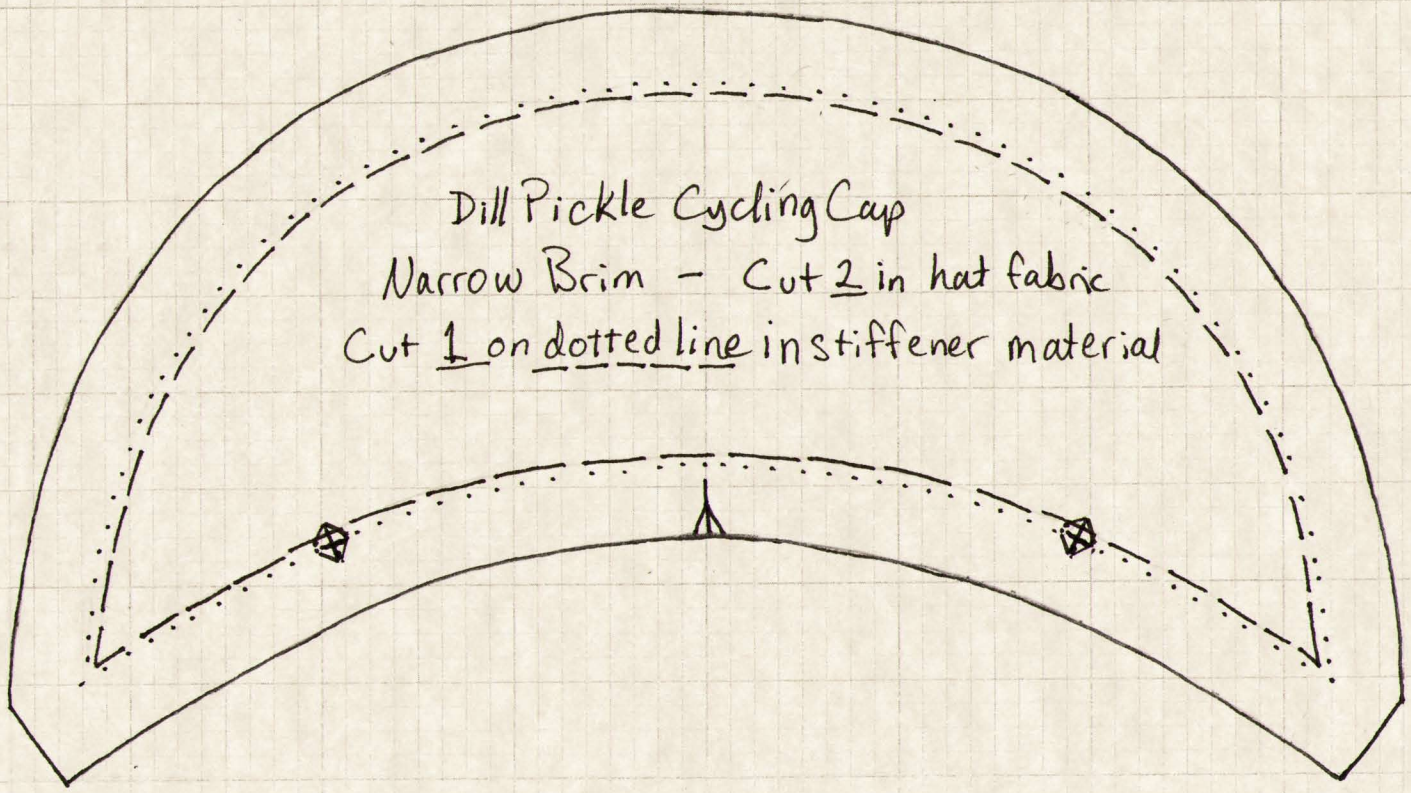 Dill Pickle Cycling Cap
Narrow Brim - Cut 2 in hat fabric
Cut 1 on dotted line in stiffener material